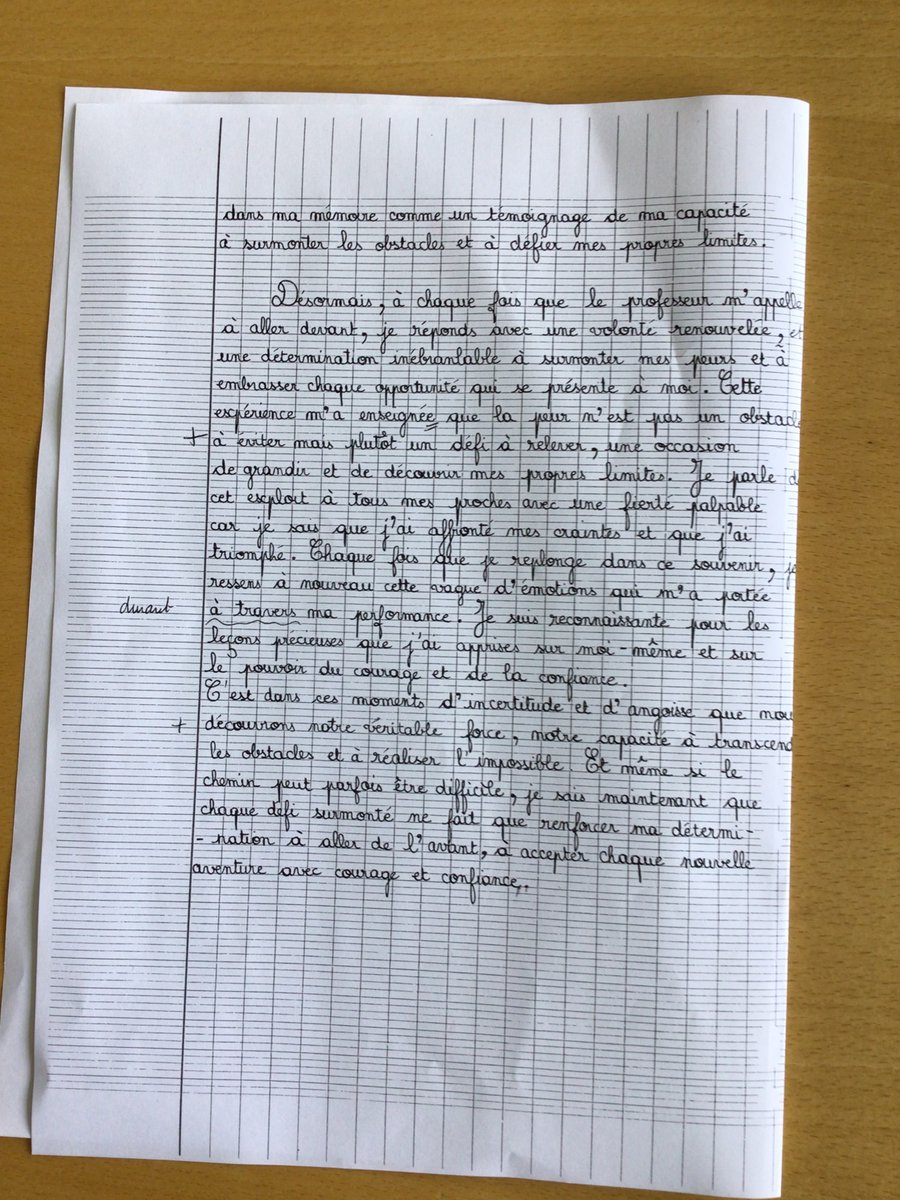 dans ma mémoire comme un témoignage de ma capacité
à surmonter les obstacles et à défier mes propres limites.
Désormais, à chaque fois que le professeur m'appelle
à aller devant, je réponds avec une volonté renouvelée, et
une détermination inébranlable à surmonter mes peurs et à
embrasser chaque opportunité qui se présente à moi. Cette
expérience m'a enseignée que la peur n'est pas un obstacle
+ à éviter mais plutôt un défi à relever, une occasion
de grandir et de découvrir mes propres limites. Je parle d
cet exploit à tous mes proches avec une fierté palpable
car je sais que j'ai affronté mes craintes et que j'ai
triomphé. Chaque fois que je replonge dans ce souvenir, je
ressens à nouveau cette vague d'émotions qui m'a portée
durant
à travers ma performance. Je suis reconnaissante pour les
leçons précieuses que j'ai apprises sur moi-même et sur
le pouvoir du courage et de la confiance.
C'est dans ces moments d'incertitude et d'angoisse que nou
+ découvrons notre véritable force, notre capacité à transcend
les obstacles et à réaliser l'impossible. Et même si le
chemin peut parfois être difficile, je sais maintenant que
chaque défi surmonté ne fait que renforcer ma détermi-
-nation à aller de l'avant, à accepter chaque nouvelle
aventure avec courage et confiance,.